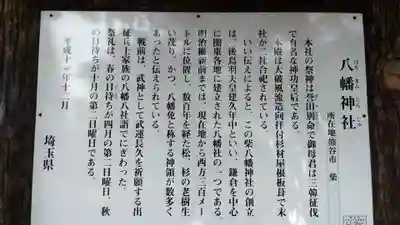 八幡神社
はちまんじんじゃ
所在地 熊谷市 柴
本社の祭神は誉田別命で御母君は三韓征伐
で有名な神功皇后である。
本殿は大破風流造向拝付杉材屋根板葺で末
社が二社合祀されている。
いい伝えによると、この柴八幡神社の創立
は、後鳥羽天皇建久年中といい、鎌倉を中心
に関東各地に建立された八幡社の一つである。
明治維新前までは、現在地から西方三百メー
トルに位置し、数百年を経た松、杉の老樹生
い茂り、かつ、八幡免と称する神領が数多く
あったと伝えられている。
戦前は、武神として武運長久を祈願する出
征兵士家族の八幡八社詣でにぎわった。
祭礼は、春の日待ちが四月の第二日曜日、秋
の日待ちが十月の第二日曜日である。
平成十二年十二月
埼玉県